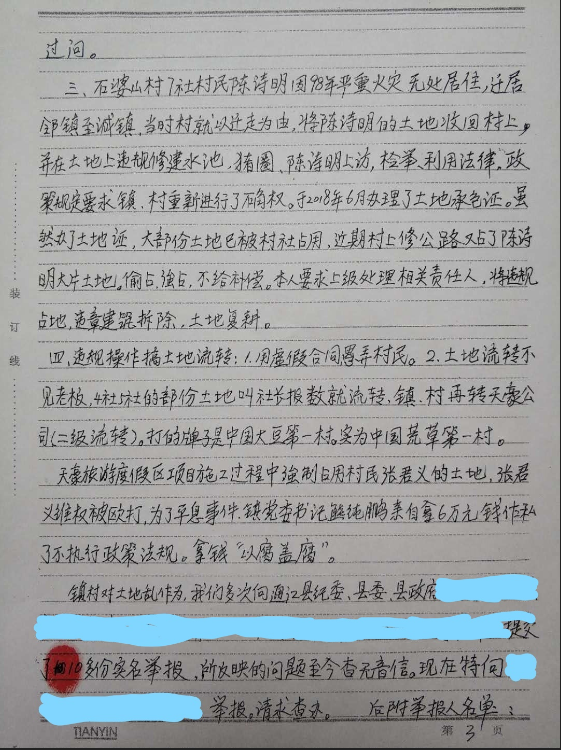 过问。
三、石婆山村7社村民陈诗明因98年严重火灾无处居住,迁居
邻镇至诚镇,当时村就以迁走为由,将陈诗明的土地收回村上,
并在土地上违规修建水池、猪圈、陈诗明上访,检举、利用法律、政
策规定要求镇、村重新进行了确权。于2018年6月办理了土地承包证。虽
然办了土地证,大部份土地已被村社占用,近期村上修公路又占了陈诗
明大片土地。偷占,强占,不给补偿。本人要求上级处理相关责任人,将违规
占地,违章建筑拆除,土地复耕。
四、违规操作搞土地流转:1.用虚假合同愚弄村民。2.土地流转不
见老板,4社上社的部份土地叫社长报数就流转、镇、村再转天豪公
司(二级流转)。打的牌子是中国大豆第一村。实为中国荒草第一村。
天豪旅游度假区项目施工过程中强制占用村民张君义的土地,张君
义维权被欧打,为了平息事件.镇党委书记熊纯鹏亲自拿6万元钱作私
了不执行政策法规。拿钱“以腐盖腐”。
镇村对土地乱作为,我们多次向通江县纪委、县委、县政府
提交
了10多份实名举报,所反映的问题至今杳无音信。现在特向
举报。请求查办。 后附举报人名单:
TIANYIN 第3页
装
订
线